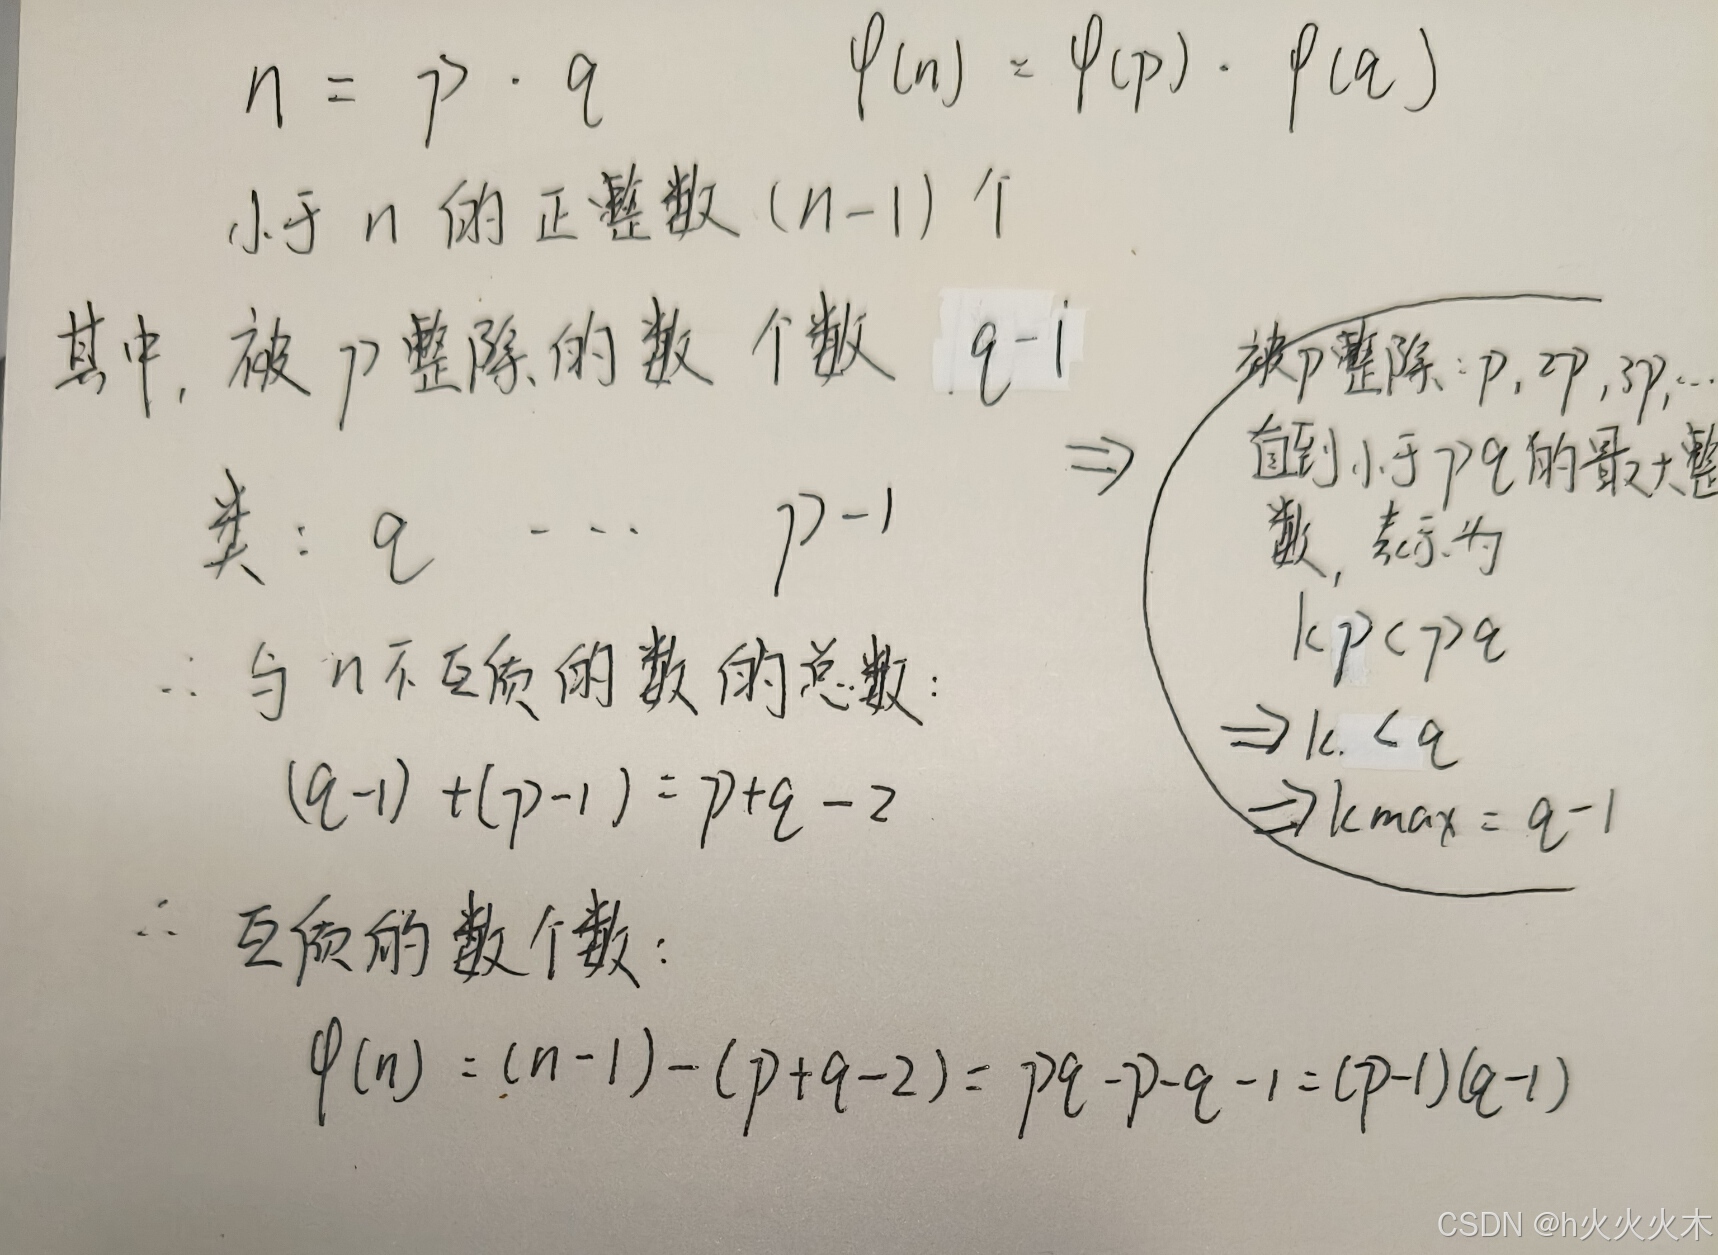 n = p · q φ(n) = φ(p) · φ(q)
小于 n 的正整数 (n-1) 个
其中, 被 p 整除的数 个数 q-1
类: q ... p-1
∴ 与 n 不互质的数的总数:
(q-1) + (p-1) = p+q-2
∴ 互质的数个数:
φ(n) = (n-1) - (p+q-2) = pq -p-q -1 = (p-1)(q-1)
⇒
被p整除: p, 2p, 3p, ...
直到小于pq的最大整
数, 表示为
kp < pq
⇒ k < q
⇒ kmax = q-1
CSDN @h火火火木